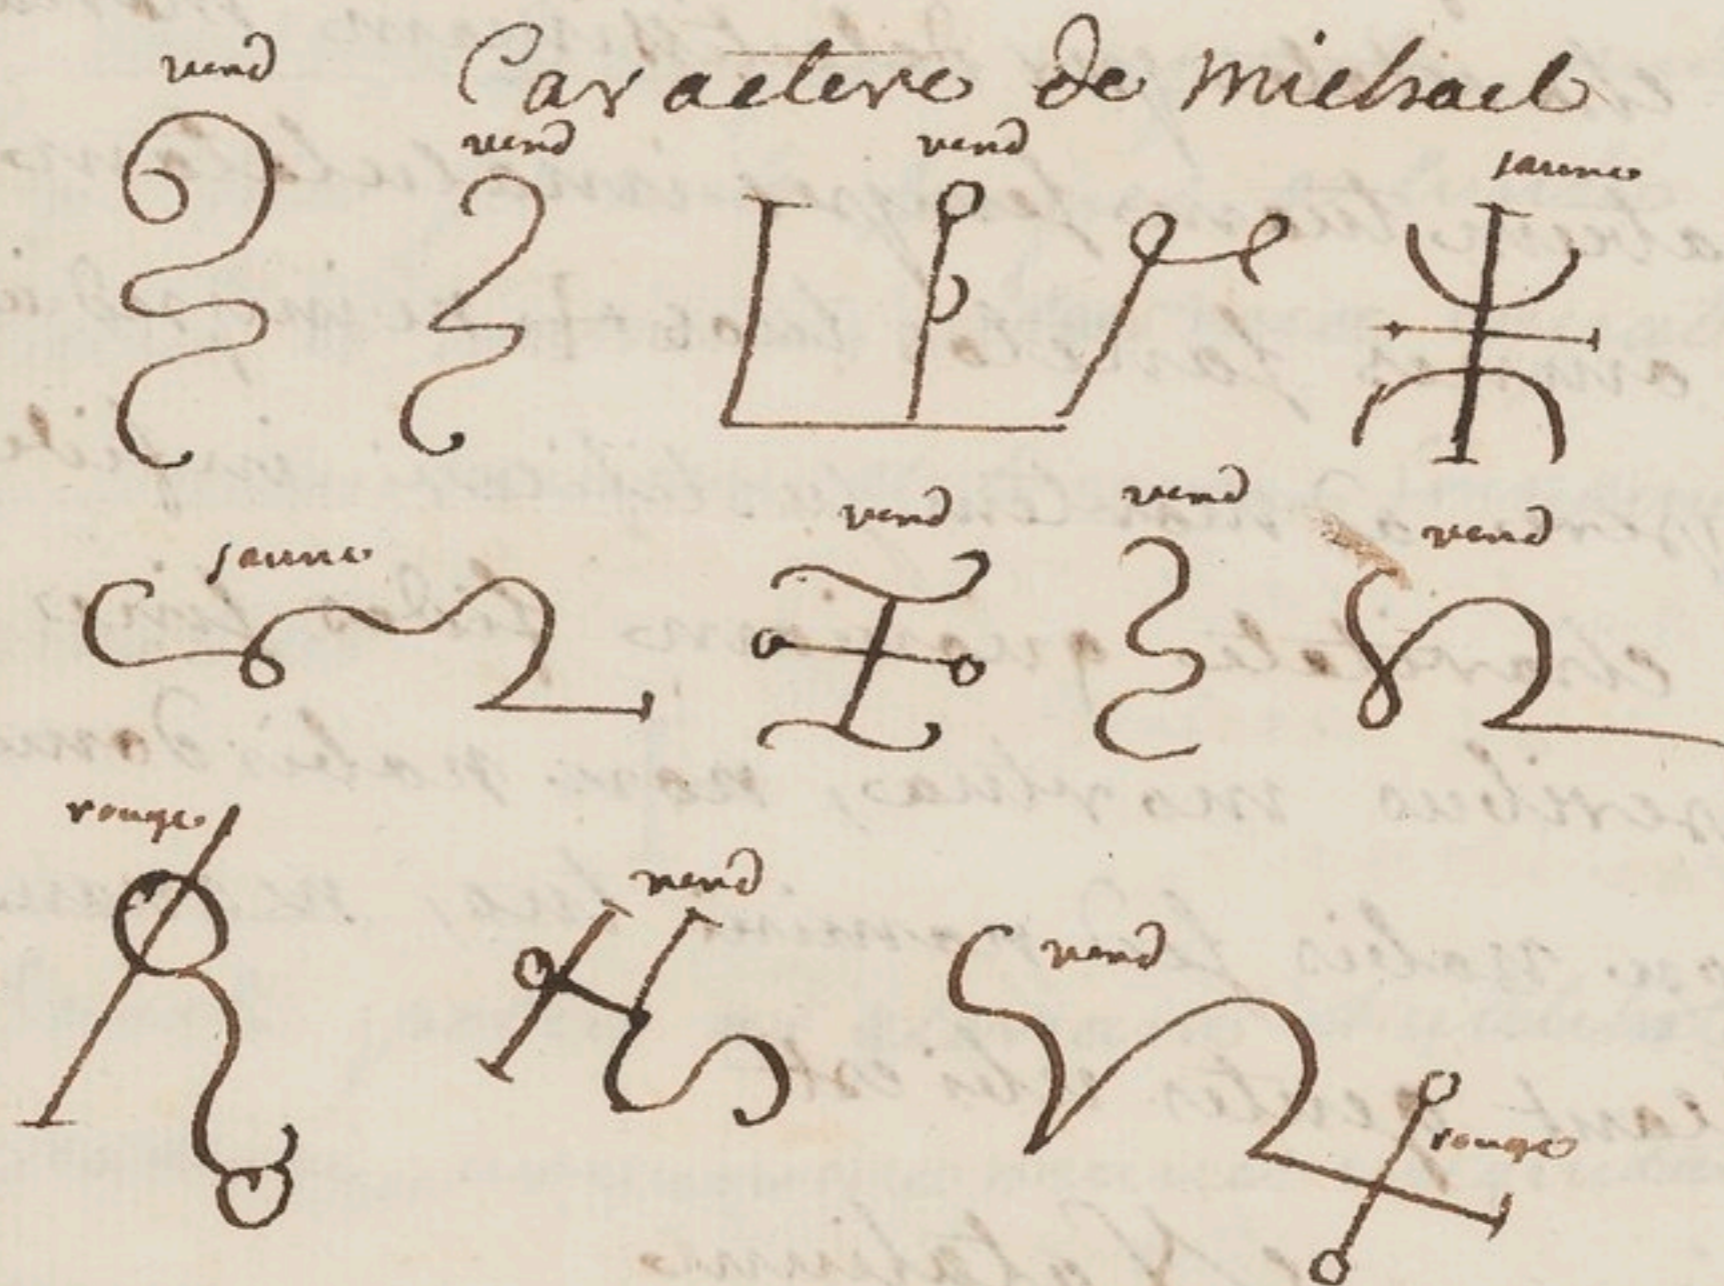 Caractere de michael
vend
vend
vend
jaune
jaune
vend
vend
vend
rouge
vend
vend
rouge